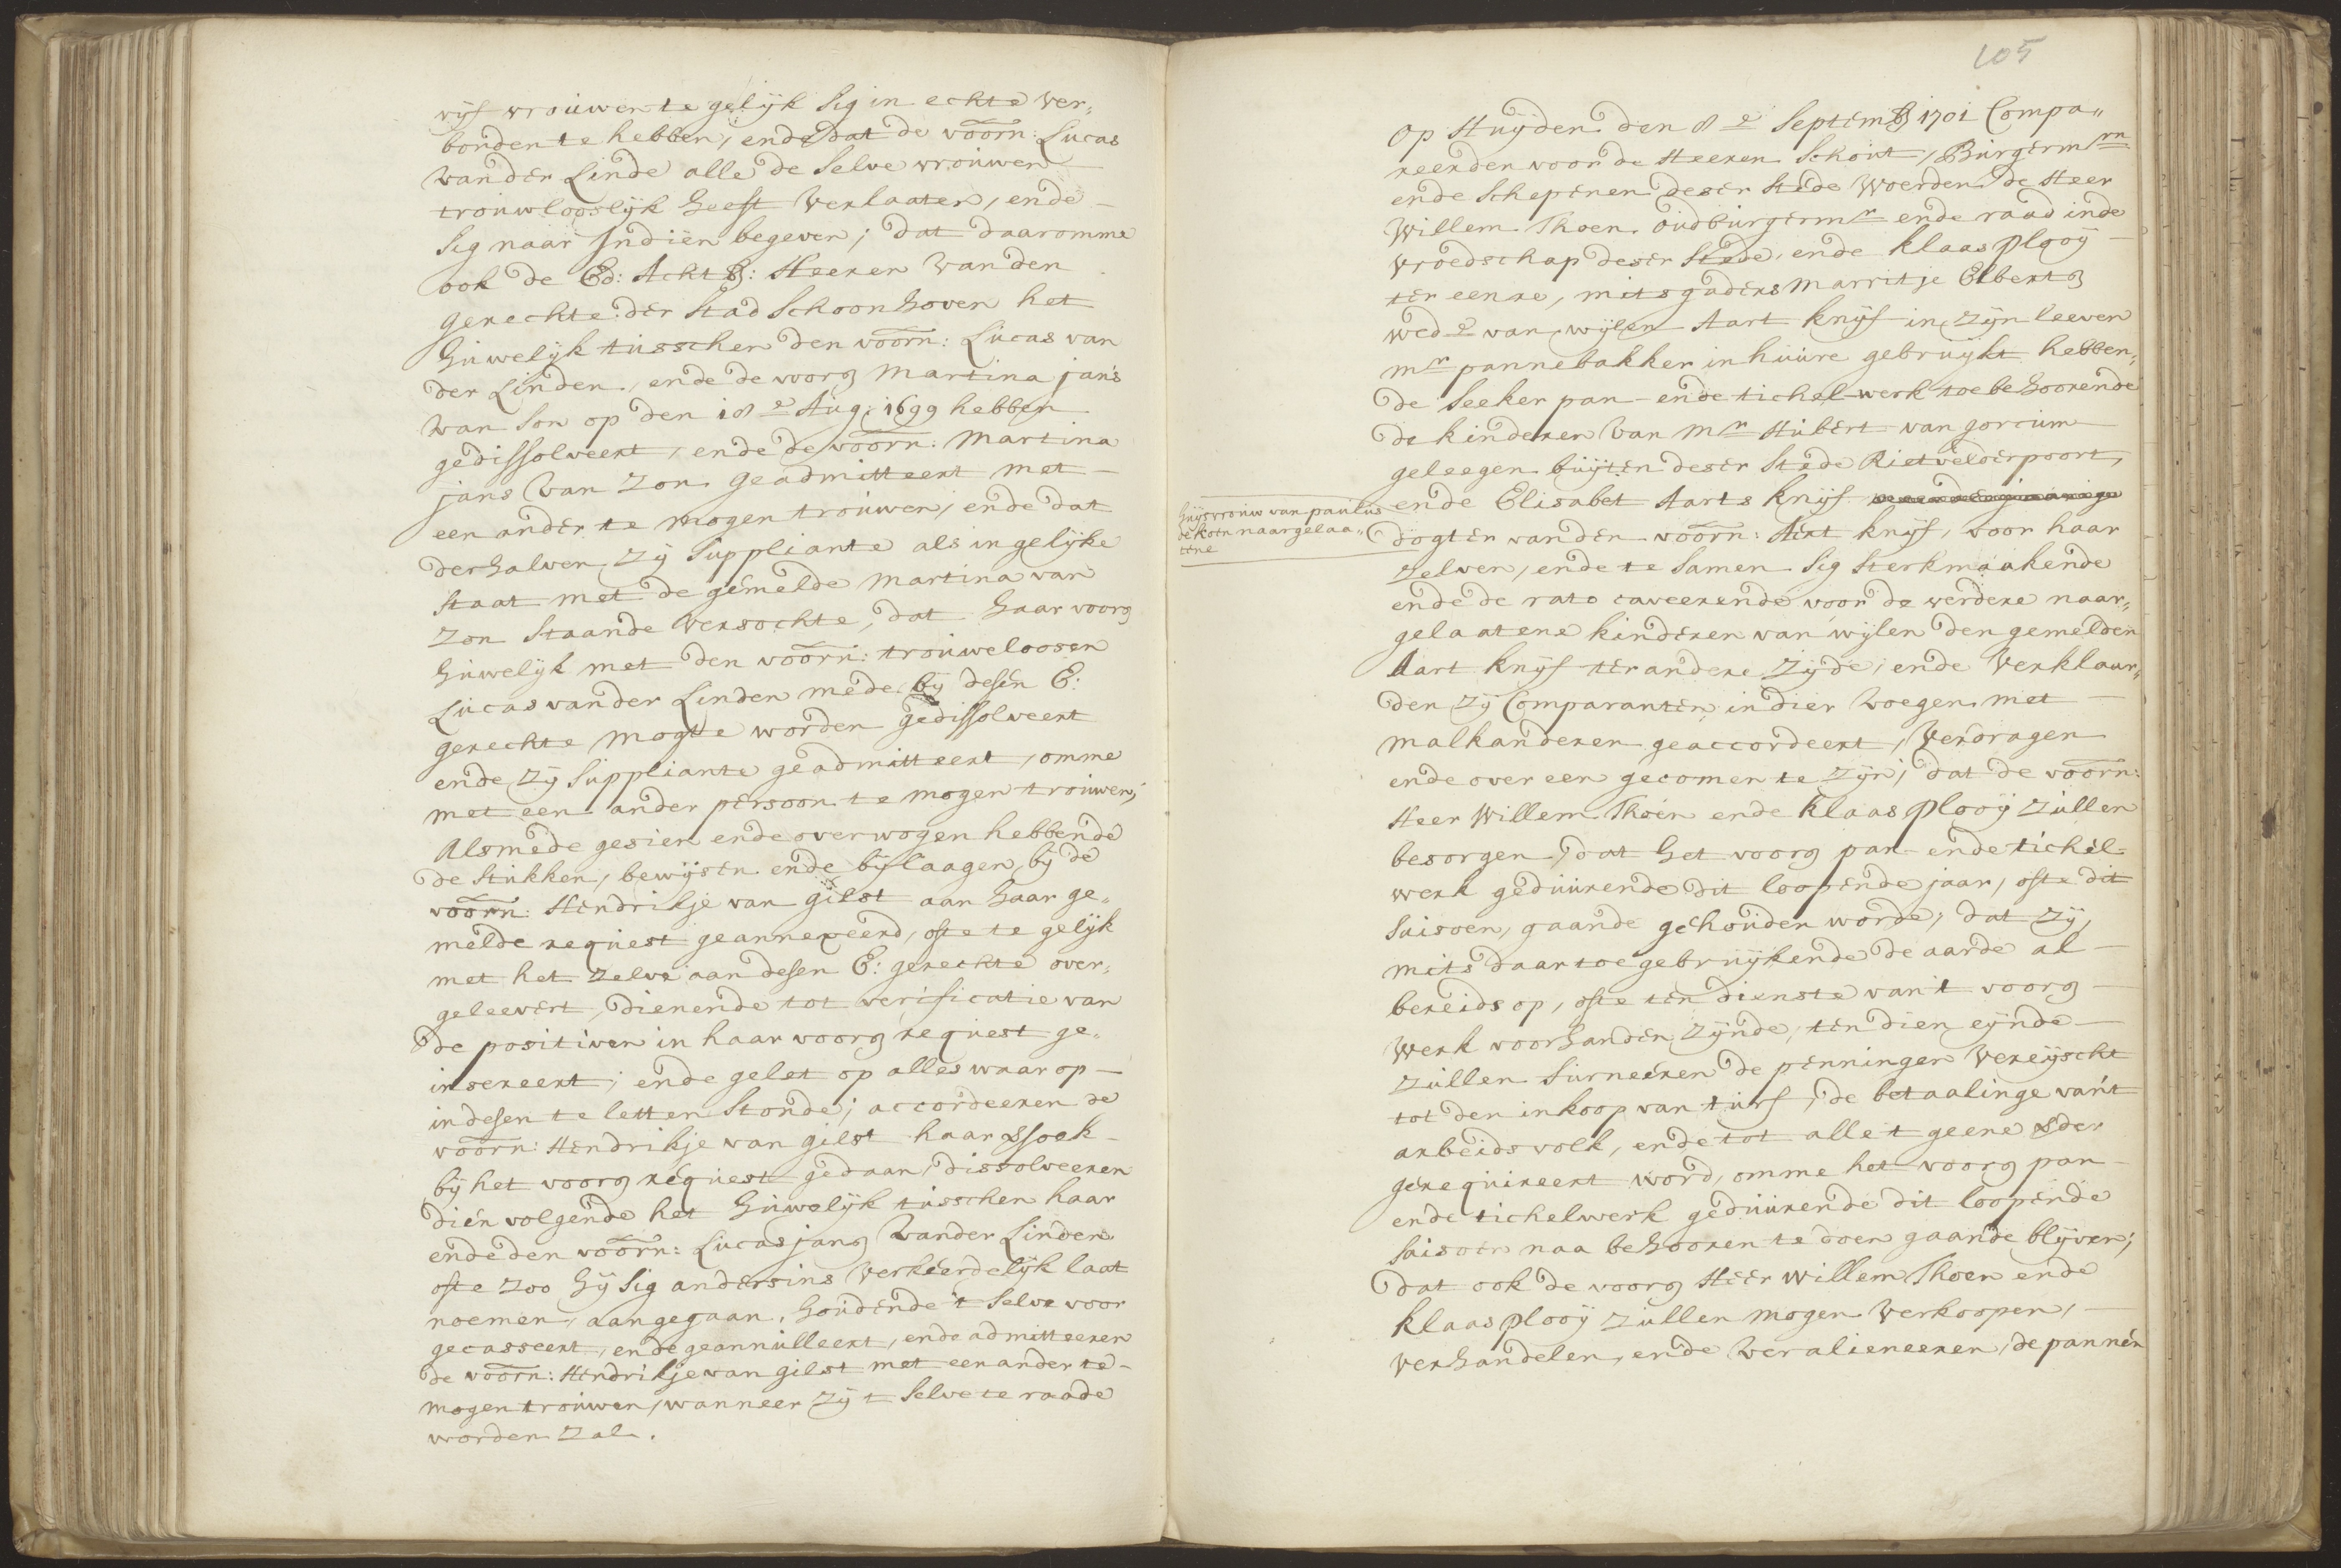 vijf vrouwen te gelijk sig in echte ver„
bonden te hebben, ende dat de voorn: Lucas
van der Linde alle de selve vrouwen
trouwlooslijk heeft verlaaten, ende
sig naar Indien begeven; dat daaromme
ook de Ed: Achtb: Heeren van den
gerechte der stad Schoonhoven het
huwelijk tusschen den voorn: Lucas van
der Linden, ende de voorg martina jans
van son op den 18e Aug: 1699 hebben
gedissolveert, ende de voorn: Martina
jans van zon geadmitteert met
een ander te mogen trouwen, ende dat
derhalven zij suppliante als in gelijke
staat met de gemelde martina van
zon staande versochte, dat haar voorg
huwelijk met den voorn: trouweloosen
Lucas van der Linden mede bij desen E:
gerechte mogte worden gedissolveert
ende zij suppliante geadmitteert, omme
met een ander persoon te mogen trouwen;
Alsmede gesien ende overwogen hebbende
de stukken, bewijsen ende bijlaagen bij de
voorn: Hendrikje van gilst aan haar ge„
melde request geannexeerd, ofte te gelijk
met het zelve aan desen E: gerechte over„
geleevert, dienende tot verificatie van
de positiven in haar voorg request ge„
insereert; ende gelet op alles waar op
in desen te letten stonde; accordeeren de
voorn: Hendrikje van gilst haar vsoek
bij het voorg request gedaan, dissolveeren
dien volgende het huwelijk tusschen haar
ende den voorn: Lucas jans van der Linden
ofte zoo hij sig andersins verkeerdelijk laat
noemen, aangegaan, houdende 't selve voor
gecasseert, ende geannulleert, ende admitteeren
de voorn: Hendrikje van gilst met een ander te
mogen trouwen, wanneer zij 't selve te raade
worden zal.
105
Op Huijden den 8e Septemb 1701 Compa„
reerden voor de Heeren Schout, Burgermrn
ende Schepenen deser Stede Woerden de Heer
Willem Thoen oudburgermr ende raad inde
vroedschap deser Stede, ende klaas plooij
ter eenre, mitsgaders marritje Elberts
wede van wijlen Aart knijf in zijn leeven
mr pannebakker in huure gebruijkt hebben„
de seeker pan- ende tichel-werk toebehoorende
de kinderen van mr Hubert van gorcum
geleegen buijten deser Stede Rietvelderpoort,
ende Elisabet Aarts knijf
huijsvrouw van paulus
de koen naargelaa„
tene
dogter van den voorn: Aert knijf, voor haar
zelven, ende te samen sig sterkmaakende
ende de rato caveerende voor de verdere naar„
gelaatene kinderen van wijlen den gemelden
Aart knijf ter andere zijde, ende verklaar„
den zij Comparanten in dier voegen met
malkanderen geaccordeert, verdragen
ende over een gecomen te zijn; dat de voorn:
Heer Willem Thoen ende klaas plooij zullen
besorgen, dat het voorg pan- ende tichel-
werk geduurende dit loopende jaar, ofte dit
saisoen, gaande gehouden worde, dat zij,
mits daar toe gebruijkende de aarde al
bereids op, ofte ten dienste van 't voorg
werk voorhanden zijnde, ten dien eijnde
zullen furneeren de penningen vereijscht
tot den inkoop van turf, de betaalinge van 't
arbeidsvolk, ende tot alle 't geene vder
gerequireert word, omme het voorg pan
ende tichelwerk geduurende dit loopende
saisoen naa behooren te doen gaande blijven;
dat ook de voorg Heer Willem Thoen ende
klaas plooij zullen mogen verkoopen,
verhandelen, ende veralieneeren, de pannen